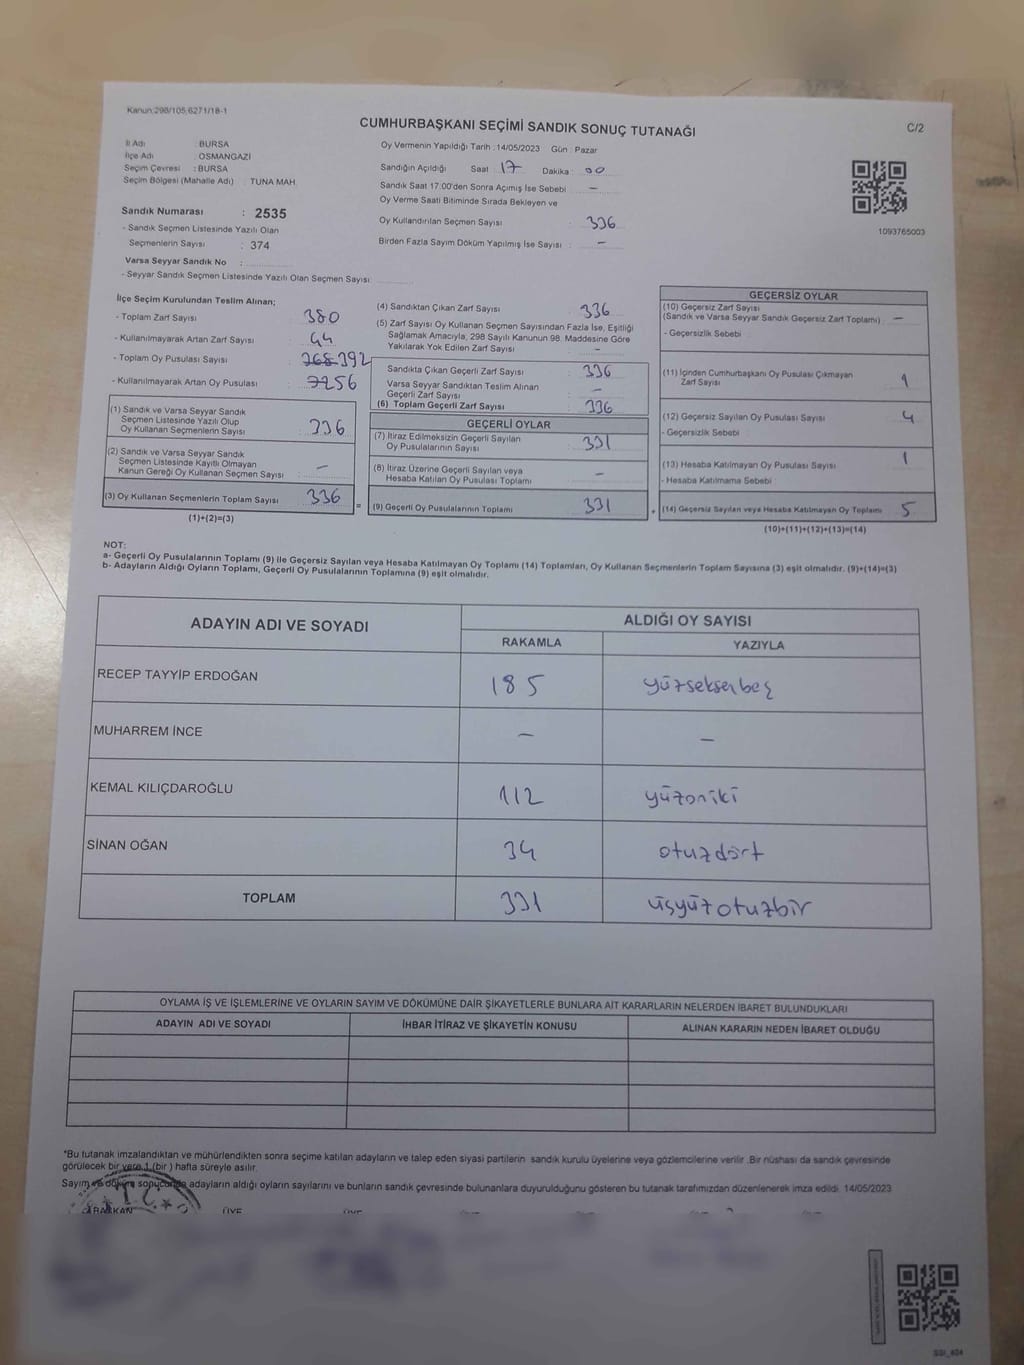 Kanun:298/105,6271/18-1
CUMHURBAŞKANI SEÇİMİ SANDIK SONUÇ TUTANAĞI
C/2
İl Adı : BURSA
İlçe Adı : OSMANGAZİ
Seçim Çevresi : BURSA
Seçim Bölgesi (Mahalle Adı) : TUNA MAH.
Oy Vermenin Yapıldığı Tarih : 14/05/2023 Gün : Pazar
Sandığın Açıldığı Saat 17 Dakika : 00
Sandık Saat 17:00'den Sonra Açılmış İse Sebebi : –
Oy Verme Saati Bitiminde Sırada Bekleyen ve
Oy Kullandırılan Seçmen Sayısı : 336
Birden Fazla Sayım Döküm Yapılmış İse Sayısı : –
1093765003
Sandık Numarası : 2535
- Sandık Seçmen Listesinde Yazılı Olan
Seçmenlerin Sayısı : 374
Varsa Seyyar Sandık No :
- Seyyar Sandık Seçmen Listesinde Yazılı Olan Seçmen Sayısı:
İlçe Seçim Kurulundan Teslim Alınan;
- Toplam Zarf Sayısı : 380
- Kullanılmayarak Artan Zarf Sayısı : 44
- Toplam Oy Pusulası Sayısı : 392
- Kullanılmayarak Artan Oy Pusulası : 56
(1) Sandık ve Varsa Seyyar Sandık
Seçmen Listesinde Yazılı Olup
Oy Kullanan Seçmenlerin Sayısı : 336
(2) Sandık ve Varsa Seyyar Sandık
Seçmen Listesinde Kayıtlı Olmayan
Kanun Gereği Oy Kullanan Seçmen Sayısı : –
(3) Oy Kullanan Seçmenlerin Toplam Sayısı : 336
(1)+(2)=(3)
(4) Sandıktan Çıkan Zarf Sayısı : 336
(5) Zarf Sayısı Oy Kullanan Seçmen Sayısından Fazla İse, Eşitliği
Sağlamak Amacıyla, 298 Sayılı Kanunun 98. Maddesine Göre
Yakılarak Yok Edilen Zarf Sayısı : –
Sandıkta Çıkan Geçerli Zarf Sayısı : 336
Varsa Seyyar Sandıktan Teslim Alınan
Geçerli Zarf Sayısı : –
(6) Toplam Geçerli Zarf Sayısı : 336
GEÇERLİ OYLAR
(7) İtiraz Edilmeksizin Geçerli Sayılan
Oy Pusulalarının Sayısı : 331
(8) İtiraz Üzerine Geçerli Sayılan veya
Hesaba Katılan Oy Pusulası Toplamı : –
(9) Geçerli Oy Pusulalarının Toplamı : 331
GEÇERSİZ OYLAR
(10) Geçersiz Zarf Sayısı
(Sandık ve Varsa Seyyar Sandık Geçersiz Zarf Toplamı) : –
- Geçersizlik Sebebi :
(11) İçinden Cumhurbaşkanı Oy Pusulası Çıkmayan
Zarf Sayısı : 1
(12) Geçersiz Sayılan Oy Pusulası Sayısı : 4
- Geçersizlik Sebebi :
(13) Hesaba Katılmayan Oy Pusulası Sayısı : 1
- Hesaba Katılmama Sebebi :
(14) Geçersiz Sayılan veya Hesaba Katılmayan Oy Toplamı : 5
(10)+(11)+(12)+(13)=(14)
NOT:
a- Geçerli Oy Pusulalarının Toplamı (9) ile Geçersiz Sayılan veya Hesaba Katılmayan Oy Toplamı (14) Toplamları, Oy Kullanan Seçmenlerin Toplam Sayısına (3) eşit olmalıdır. (9)+(14)=(3)
b- Adayların Aldığı Oyların Toplamı, Geçerli Oy Pusulalarının Toplamına (9) eşit olmalıdır.
ADAYIN ADI VE SOYADI
ALDIĞI OY SAYISI
RAKAMLA YAZIYLA
RECEP TAYYİP ERDOĞAN 185 yüzseksenbeş
MUHARREM İNCE – –
KEMAL KILIÇDAROĞLU 112 yüzoniki
SİNAN OĞAN 34 otuzdört
TOPLAM 331 üçyüzotuzbir
OYLAMA İŞ VE İŞLEMLERİNE VE OYLARIN SAYIM VE DÖKÜMÜNE DAİR ŞİKAYETLERLE BUNLARA AİT KARARLARIN NELERDEN İBARET BULUNDUKLARI
ADAYIN ADI VE SOYADI İHBAR İTİRAZ VE ŞİKAYETİN KONUSU ALINAN KARARIN NEDEN İBARET OLDUĞU
*Bu tutanak imzalandıktan ve mühürlendikten sonra seçime katılan adayların ve talep eden siyasi partilerin sandık kurulu üyelerine veya gözlemcilerine verilir. Bir nüshası da sandık çevresinde
görülecek bir yere 1 (bir ) hafta süreyle asılır.
Sayım ve döküm sonucunda adayların aldığı oyların sayılarını ve bunların sandık çevresinde bulunanlara duyurulduğunu gösteren bu tutanak tarafımızdan düzenlenerek imza edildi. 14/05/2023
T.C.
BAŞKAN ÜYE ÜYE